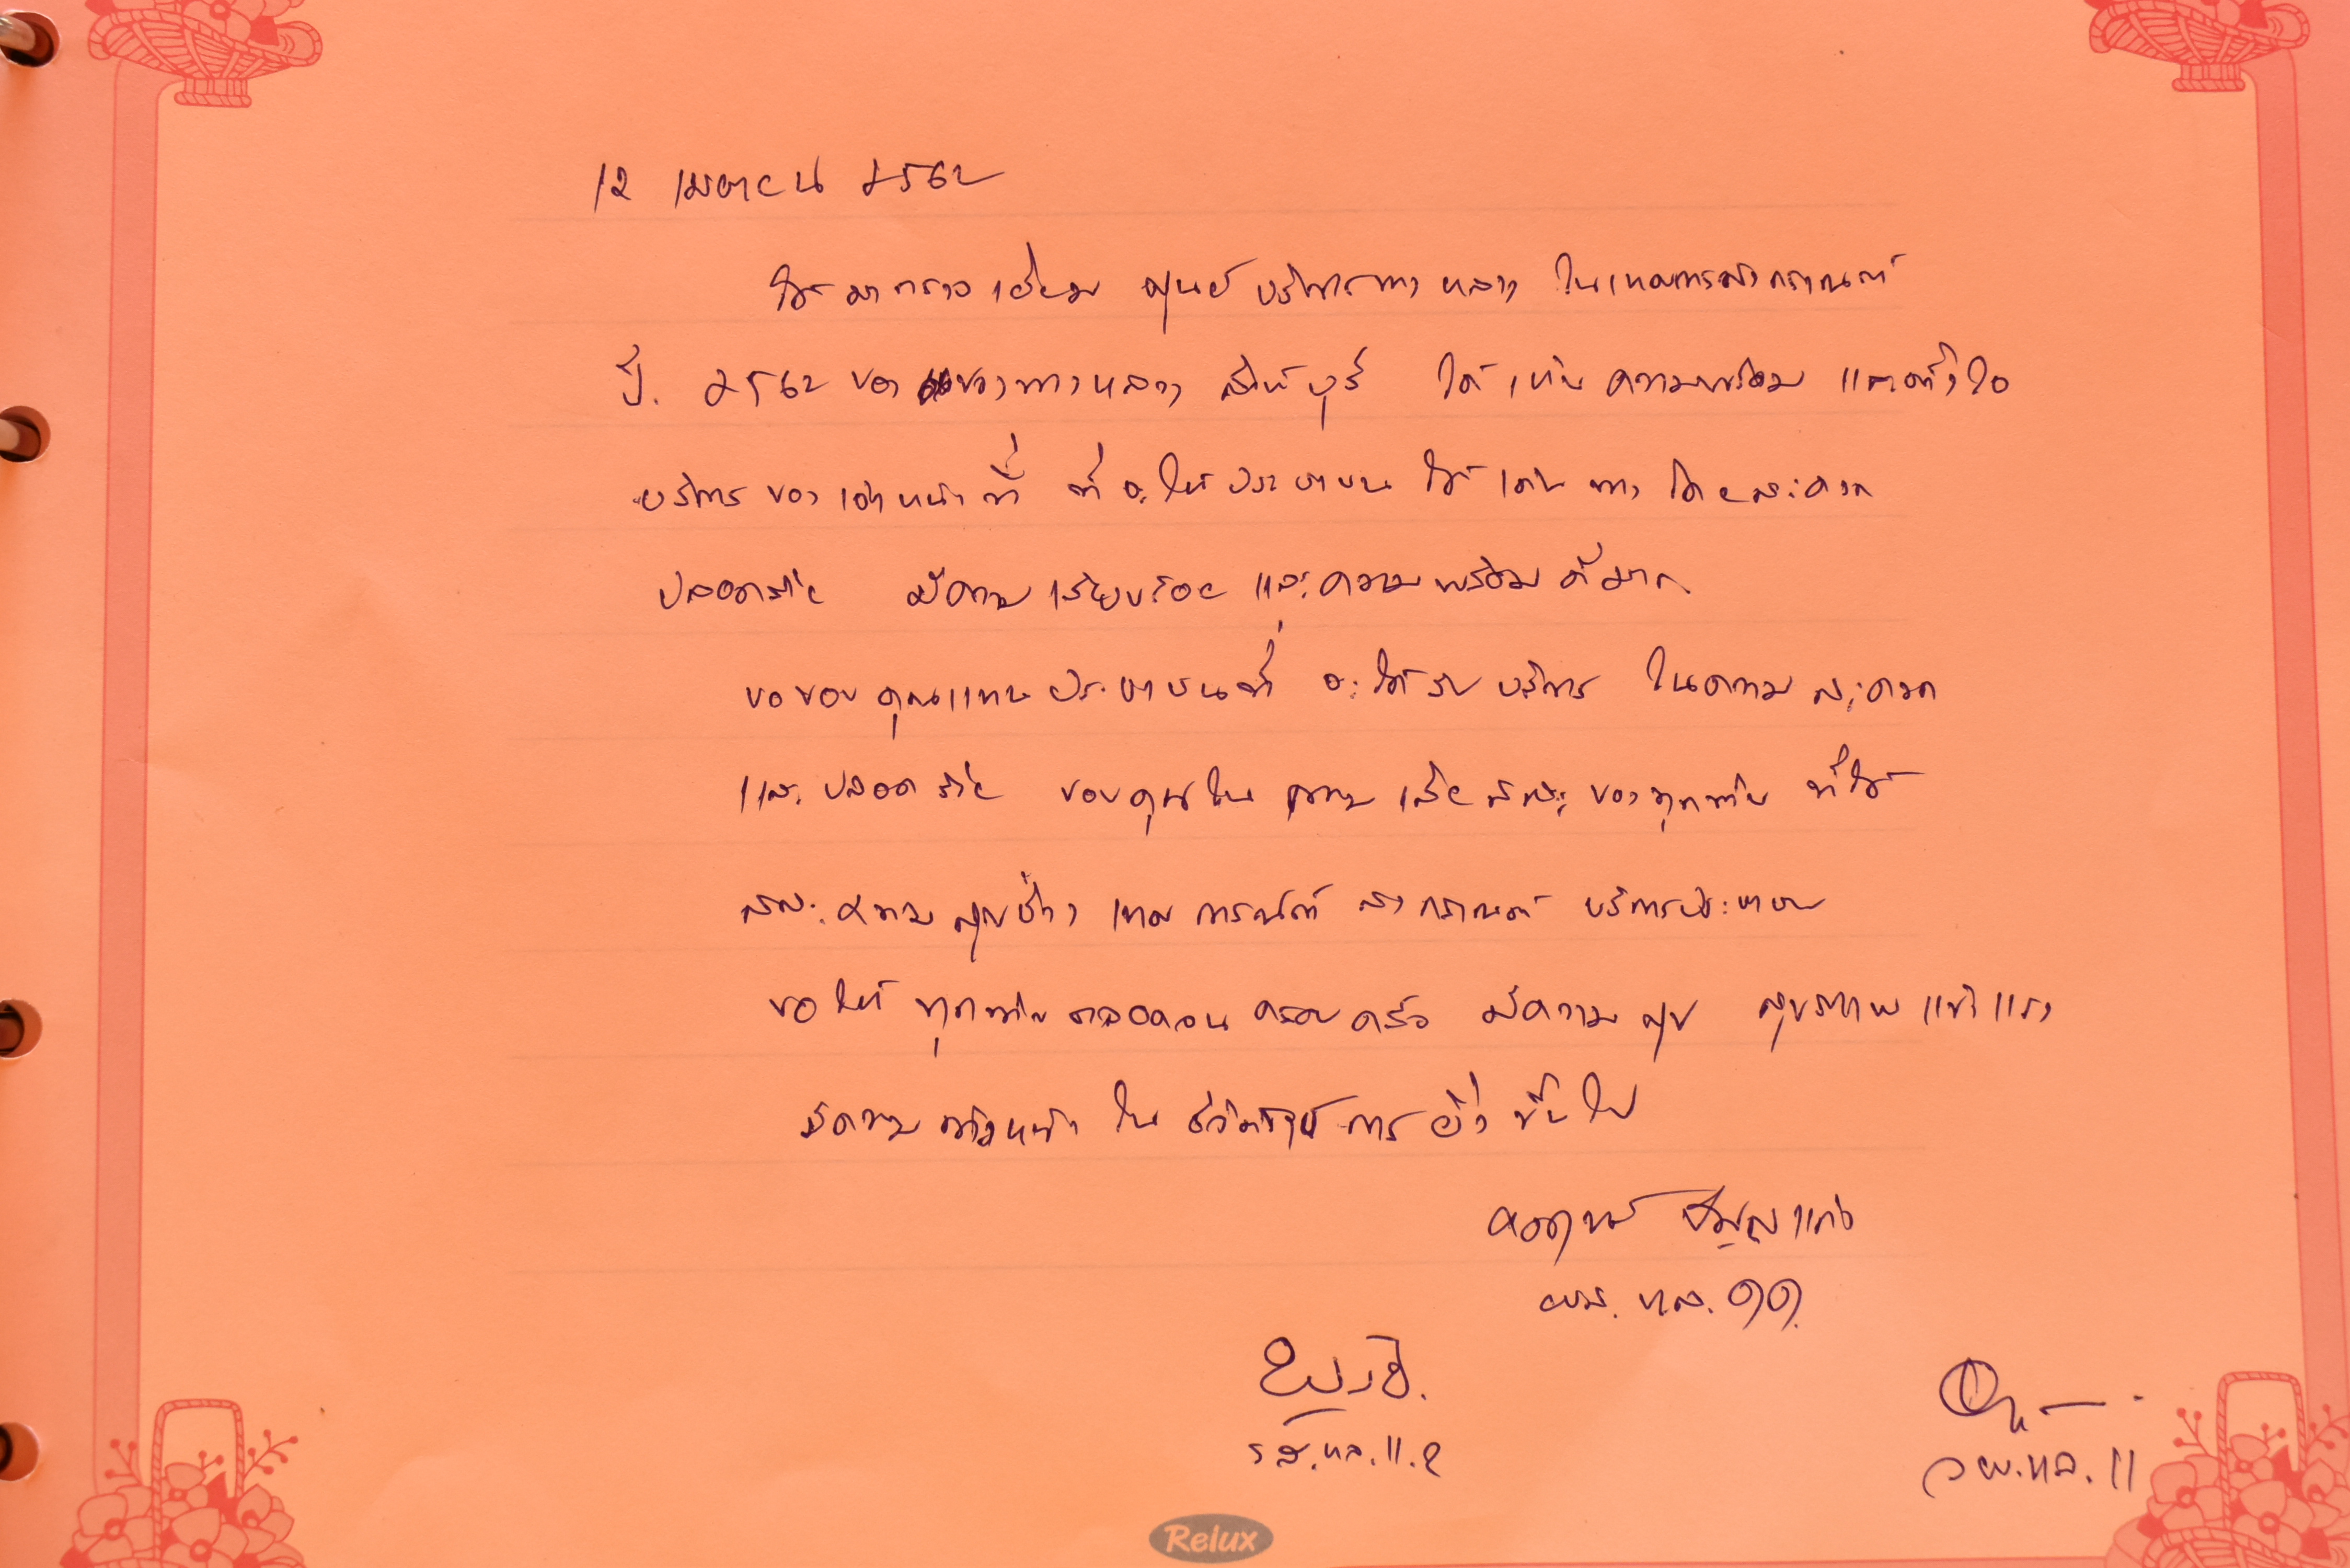 12 เมษายน 2562
ได้มาตรวจเยี่ยม ศูนย์บริการทางหลวง ในเทศกาลสงกรานต์
ปี. 2562 ของ แขวงทางหลวง สิงห์บุรี ได้เห็นความพร้อม และตั้งใจ
บริการของเจ้าหน้าที่ ที่จะให้ประชาชน ได้เดินทาง โดยสะดวก
ปลอดภัย มีความเรียบร้อย และความพร้อมดีมาก
ขอขอบคุณแทนประชาชนที่ จะได้รับบริการ ในความสะดวก
และปลอดภัย ขอบคุณใน ความเสียสละของทุกท่าน ที่ได้
สละความสุขช่วง เทศกาล สงกรานต์ บริการประชาชน
ขอให้ ทุกท่านตลอดจนครอบครัว มีความสุข สุขภาพแข็งแรง
มีความก้าวหน้า ใน ชีวิตราชการ ยิ่งขึ้นไป
ผส.ทล.๑๑.
รส.ทล.11.2
วผ.ทล.11
Relux